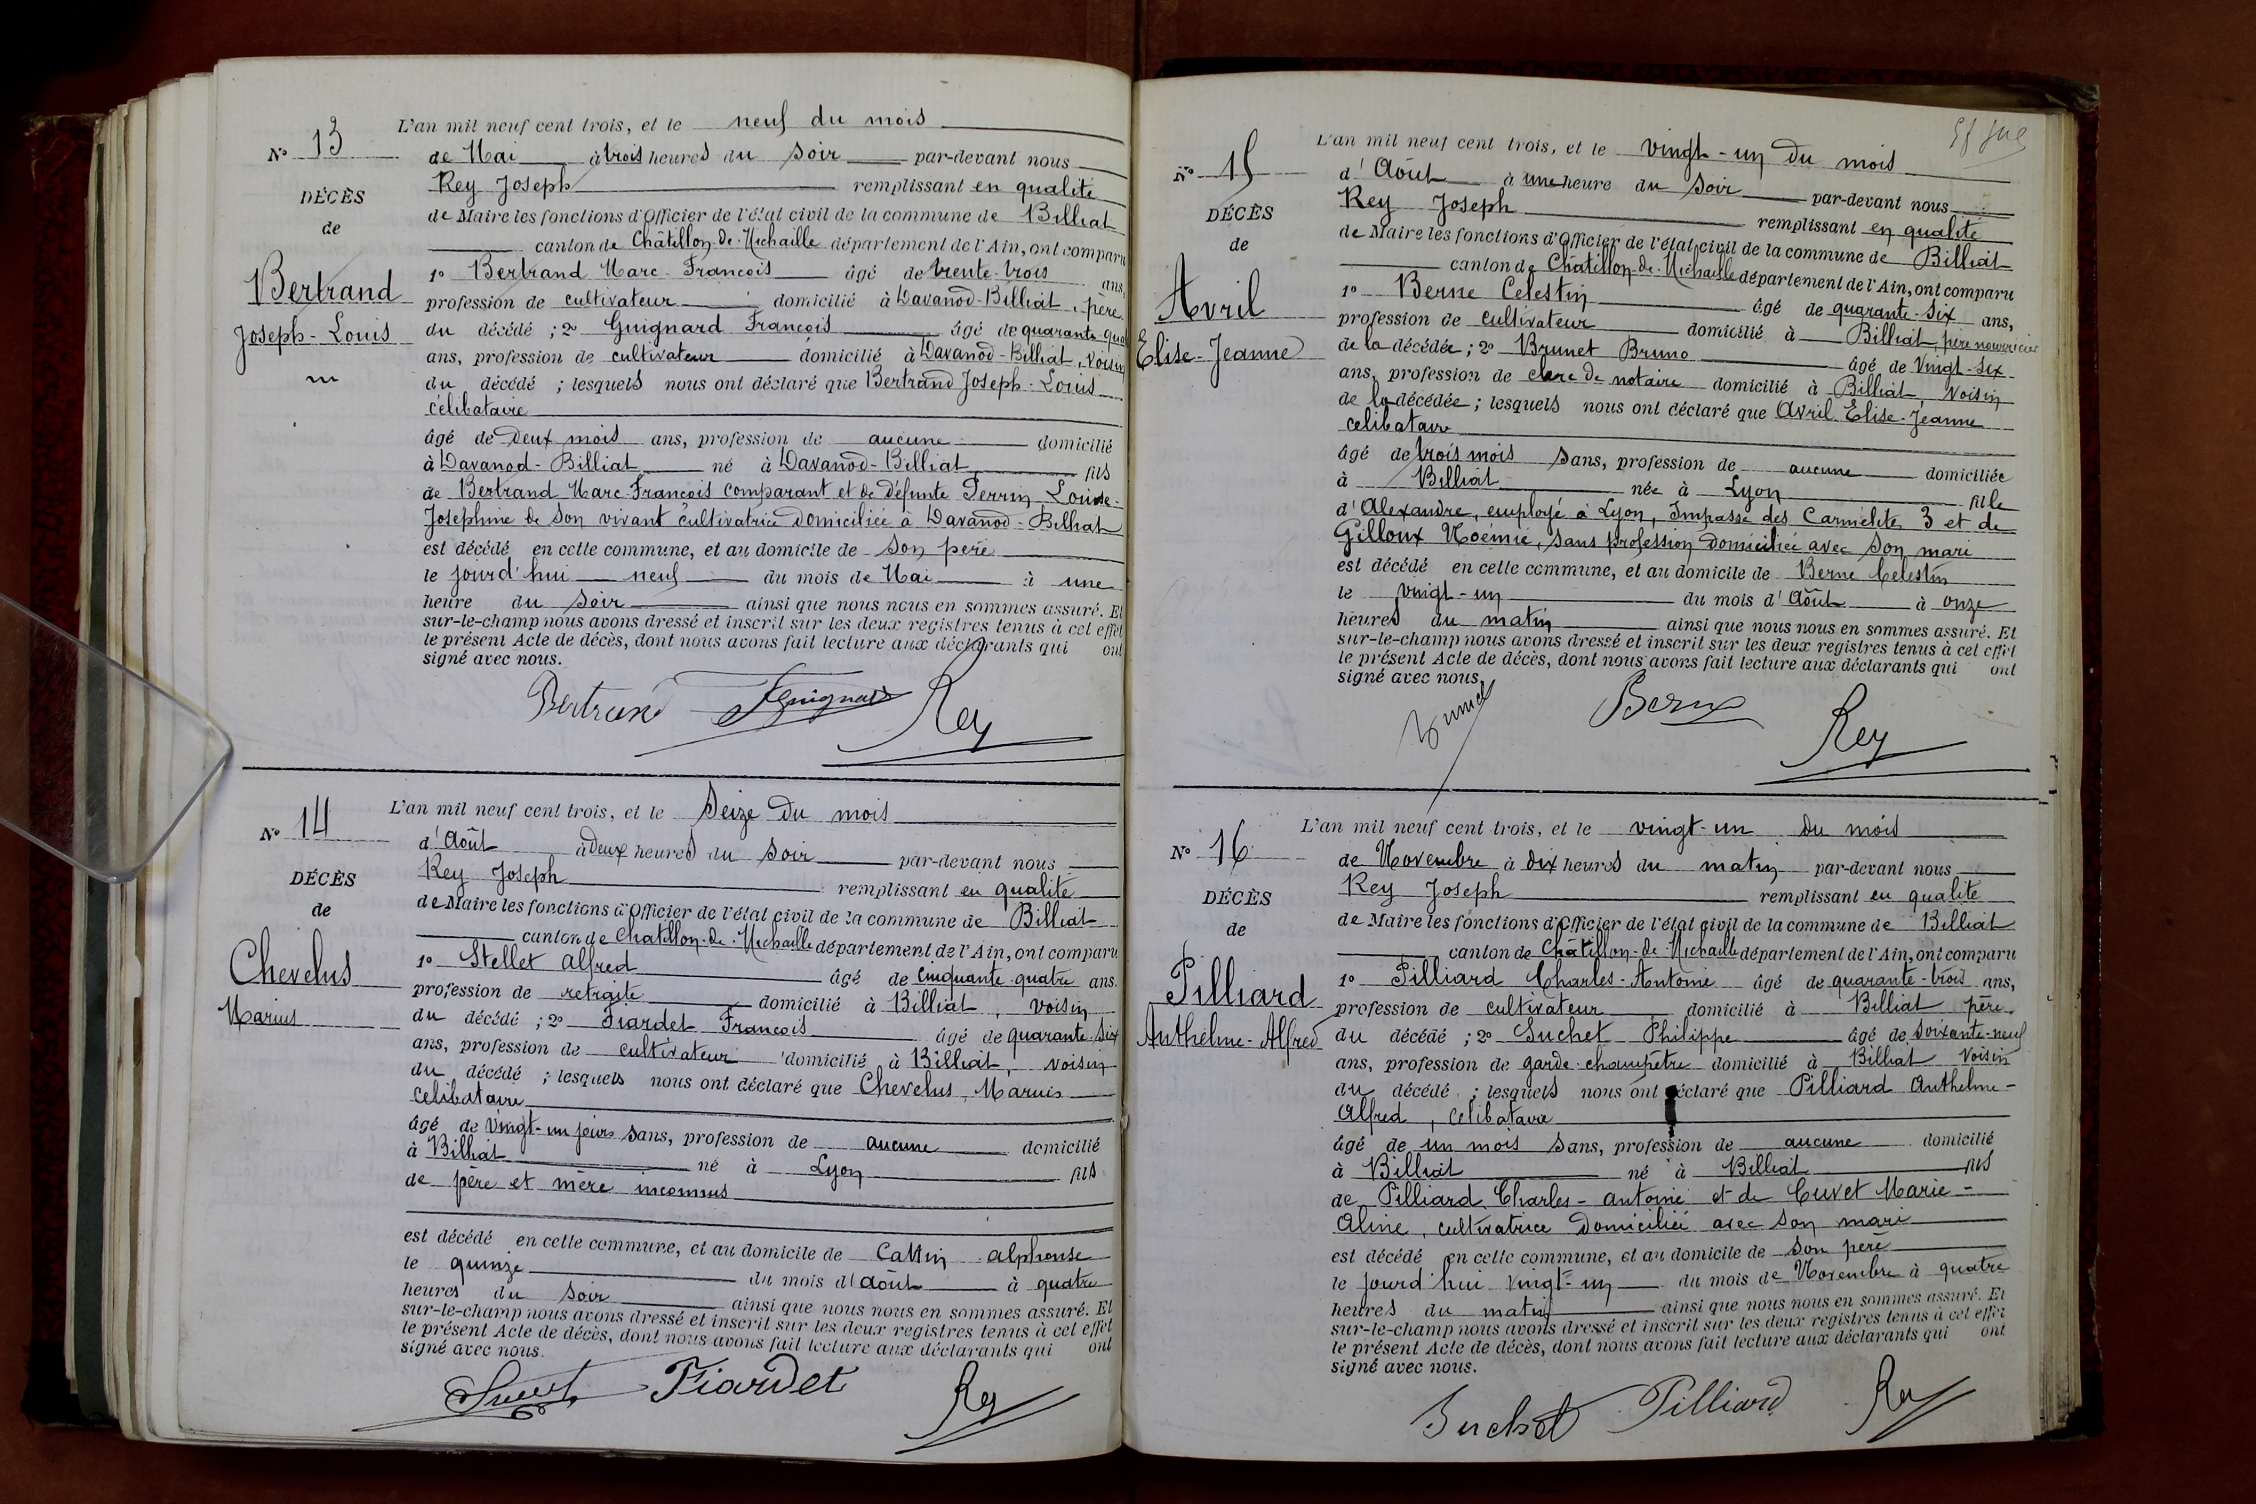 L'an mil neuf cent trois, et le neuf du mois
N° 13
de Mai à trois heures du soir par-devant nous
Rey Joseph remplissant en qualité
DÉCÈS
de Maire les fonctions d'Officier de l'état civil de la commune de Billiat
de
canton de Châtillon-de-Michaille département de l'Ain, ont comparu
1° Bertrand Marc-François âgé de trente-trois ans,
Bertrand
profession de cultivateur domicilié à Davanod-Billiat, père
Joseph-Louis
du décédé ; 2° Guignard François âgé de quarante
ans, profession de cultivateur domicilié à Davanod-Billiat, voisin
du décédé ; lesquels nous ont déclaré que Bertrand Joseph-Louis
célibataire
âgé de deux mois ans, profession de aucune domicilié
à Davanod-Billiat né à Davanod-Billiat fils
de Bertrand Marc-François comparant et de défunte Perrin Louise-
Joséphine de son vivant cultivatrice domiciliée à Davanod-Billiat
est décédé en cette commune, et au domicile de son père
le jourd'hui neuf du mois de Mai à une
heure du soir ainsi que nous nous en sommes assuré. Et
sur-le-champ nous avons dressé et inscrit sur les deux registres tenus à cet effet
le présent Acte de décès, dont nous avons fait lecture aux déclarants qui ont
signé avec nous.
Bertrand Guignard Rey
L'an mil neuf cent trois, et le Seize du mois
N° 14
d'Août à deux heures du soir par-devant nous
Rey Joseph remplissant en qualité
DÉCÈS
de Maire les fonctions d'Officier de l'état civil de la commune de Billiat
de
canton de Châtillon-de-Michaille département de l'Ain, ont comparu
Chevelus
1° Stellet Alfred âgé de cinquante-quatre ans
profession de retraité domicilié à Billiat, voisin
Marius
du décédé ; 2° Fiardet François âgé de quarante-six
ans, profession de cultivateur domicilié à Billiat, voisin
du décédé ; lesquels nous ont déclaré que Chevelus, Marius
célibataire
âgé de vingt-un jours sans, profession de aucune domicilié
à Billiat né à Lyon fils
de père et mère inconnus
est décédé en cette commune, et au domicile de Cattin Alphonse
le quinze du mois d'Août à quatre
heures du soir ainsi que nous nous en sommes assuré. Et
sur-le-champ nous avons dressé et inscrit sur les deux registres tenus à cet effet
le présent Acte de décès, dont nous avons fait lecture aux déclarants qui ont
signé avec nous.
Fiardet Rey
L'an mil neuf cent trois, et le vingt-un du mois
N° 15
d'Août à une heure du soir par-devant nous
Rey Joseph remplissant en qualité
DÉCÈS
de Maire les fonctions d'Officier de l'état civil de la commune de Billiat
de
canton de Châtillon-de-Michaille département de l'Ain, ont comparu
Avril
1° Berne Celestin âgé de quarante-six ans,
profession de cultivateur domicilié à Billiat, père nourricier
Elise-Jeanne
de la décédée ; 2° Brunet Bruno âgé de vingt-six
ans, profession de clerc de notaire domicilié à Billiat, voisin
de la décédée ; lesquels nous ont déclaré que Avril Elise-Jeanne
célibataire
âgé de trois mois sans, profession de aucune domiciliée
à Billiat née à Lyon fille
d'Alexandre, employé à Lyon, Impasse des Carmélites 3 et de
Gilloux Noémie, sans profession domiciliée avec son mari
est décédé en cette commune, et au domicile de Berne Celestin
le vingt-un du mois d'Août à onze
heures du matin ainsi que nous nous en sommes assuré. Et
sur-le-champ nous avons dressé et inscrit sur les deux registres tenus à cet effet
le présent Acte de décès, dont nous avons fait lecture aux déclarants qui ont
signé avec nous.
Brunet Berne Rey
L'an mil neuf cent trois, et le vingt-un du mois
N° 16
de Novembre à dix heures du matin par-devant nous
Rey Joseph remplissant en qualité
DÉCÈS
de Maire les fonctions d'Officier de l'état civil de la commune de Billiat
de
canton de Châtillon-de-Michaille département de l'Ain, ont comparu
Pilliard
1° Pilliard Charles-Antoine âgé de quarante-trois ans,
profession de cultivateur domicilié à Billiat père
Anthelme-Alfred
du décédé ; 2° Suchet Philippe âgé de soixante-neuf
ans, profession de garde-champêtre domicilié à Billiat voisin
du décédé ; lesquels nous ont déclaré que Pilliard Anthelme-
Alfred, célibataire
âgé de un mois sans, profession de aucune domicilié
à Billiat né à Billiat fils
de Pilliard Charles-Antoine et de Cuvet Marie-
Aline, cultivatrice domiciliée avec son mari
est décédé en cette commune, et au domicile de son père
le jourd'hui vingt-un du mois de Novembre à quatre
heures du matin ainsi que nous nous en sommes assuré. Et
sur-le-champ nous avons dressé et inscrit sur les deux registres tenus à cet effet
le présent Acte de décès, dont nous avons fait lecture aux déclarants qui ont
signé avec nous.
Suchet Pilliard Rey